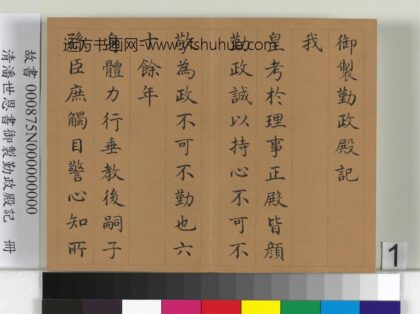 御製勤政殿記
我
皇考於理事正殿皆顏
勤政誠以持心不可不
敬為政不可不勤也六
十餘年
身體力行垂教後嗣子
孫臣庶觸目警心知所
远方书画网--www.yfshuhua.com
故書 000875N000000000
清潘世恩書御製勤政殿記 冊
1